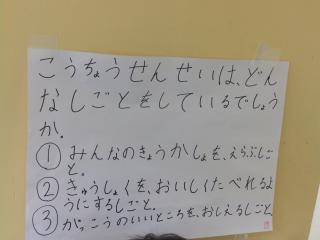 こうちょうせんせいは、どん
なしごとをしているでしょう
か.
①みんなのきょうかしょを、えらぶしご
と.
②きゅうしょくを、おいしくたべれるよ
うにするしごと.
③がっこうのいいところを、おしえるしごと.